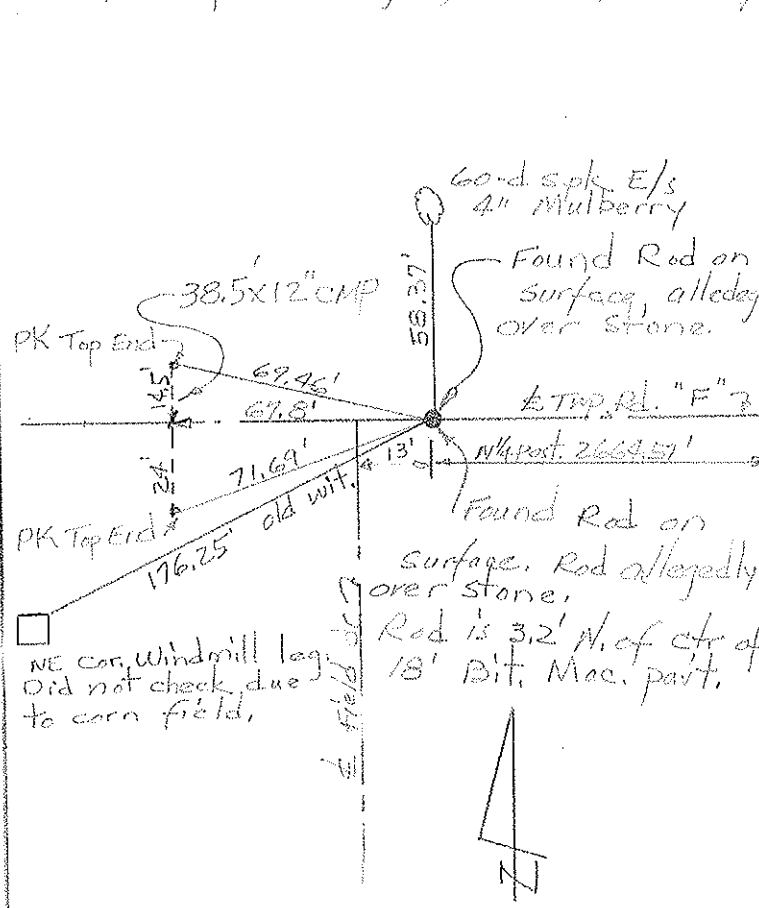 60-d spk E/s
4" Mulberry
Found Rod on
surface, alledeg
over stone.
38.5'x12" CMP
PK Top End
58.37'
14.5'
69.46'
69.8'
℄ Twp. Rd. "F"
N¼ Post. 2664.57'
13'
24'
71.69'
old wit.
176.25'
PK Top End
Found Rod on
surface. Rod allegedly
over stone.
Rod is 3.2' N. of ctr of
18' Bit. Mac. pav't.
NE cor. Windmill leg.
Did not check due
to corn field.
℄ Field dr
N